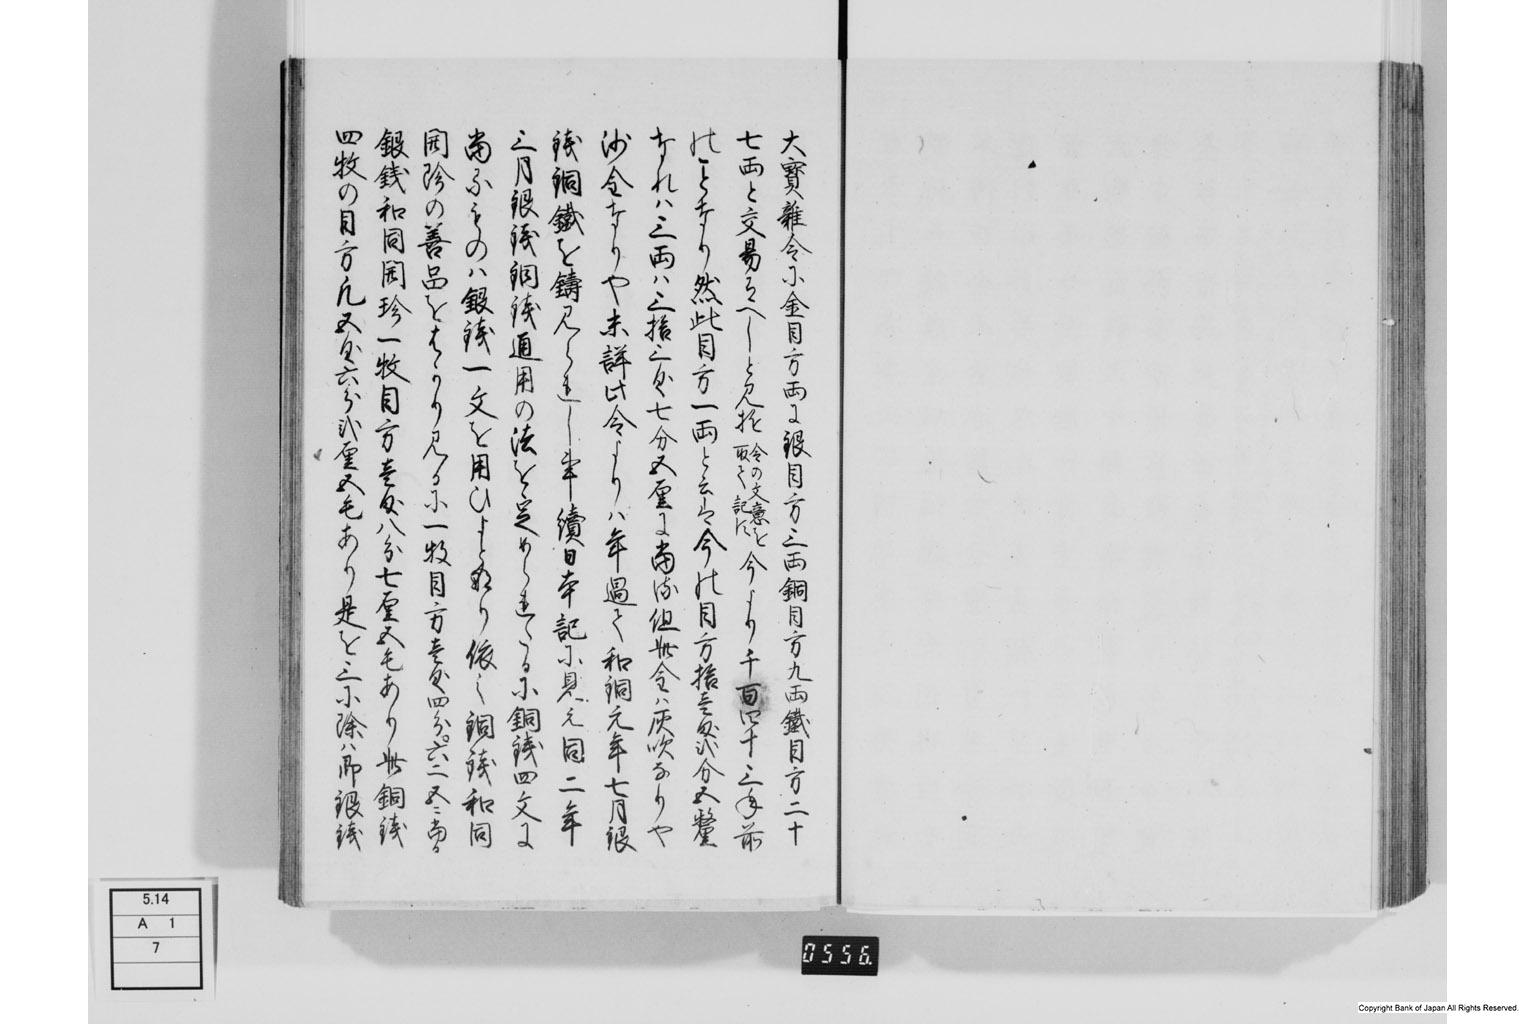 大寳雜令ニ金目方両に銀目方三両銅目方九両鐵目方二十
七両と交易すへしと見払
令の文意を
取て記す
今より千百四十三年前
のことなり然此目方一両と云は今の目方拾壱匁弐分五釐
なれハ三両ハ三拾三匁七分五厘に當る但此金ハ灰吹なりや
沙金なりや未詳此令よりハ年過て和銅元年七月銀
銭銅鐵を鋳見られし事續日本記ニ見え同二年
三月銀銭銅銭通用の法を定められたるニ銅銭四文に
當るものハ銀銭一文を用ひよとあり依之銅銭和同
開珎の善品をはかり見るニ一枚目方壱匁四分。六二五ニ當る
銀銭和同開珎一枚目方壱匁八分七厘五毛あり此銅銭
四枚の目方凡五匁六分弐厘五毛あり是を三ニ除ハ即銀銭
5.14
A 1
7
0556.
Copyright Bank of Japan All Rights Reserved.